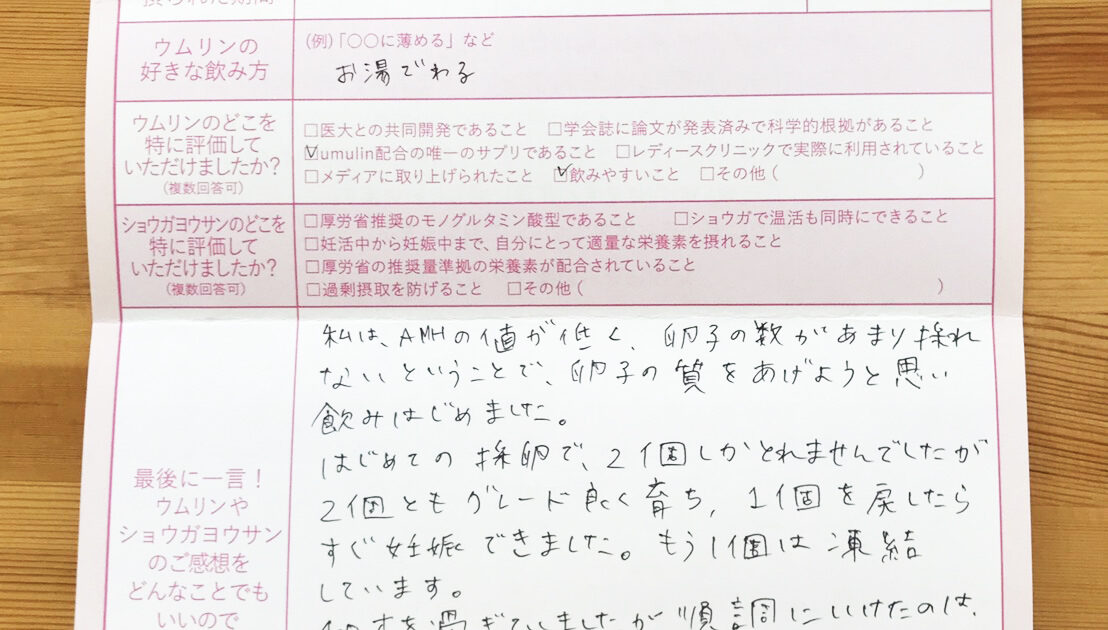 ウムリンの
好きな飲み方
(例)「〇〇に薄める」など
お湯でわる
ウムリンのどこを
特に評価して
いただけましたか?
(複数回答可)
□医大との共同開発であること □学会誌に論文が発表済みで科学的根拠があること
☑umulin配合の唯一のサプリであること □レディースクリニックで実際に利用されていること
□メディアに取り上げられたこと ☑飲みやすいこと □その他( )
ショウガヨウサンのどこを
特に評価して
いただけましたか?
(複数回答可)
□厚労省推奨のモノグルタミン酸型であること □ショウガで温活も同時にできること
□妊活中から妊娠中まで、自分にとって適量な栄養素を摂れること
□厚労省の推奨量準拠の栄養素が配合されていること
□過剰摂取を防げること □その他( )
最後に一言!
ウムリンや
ショウガヨウサン
のご感想を
どんなことでも
いいので
私は、AMHの値が低く、卵子の数があまり採れ
ないということで、卵子の質をあげようと思い
飲みはじめました。
はじめての採卵で、2個しかとれませんでしたが
2個ともグレード良く育ち、1個を戻したら
すぐ妊娠できました。もう1個は凍結
しています。
を過ぎていましたが順調にいけたのは、